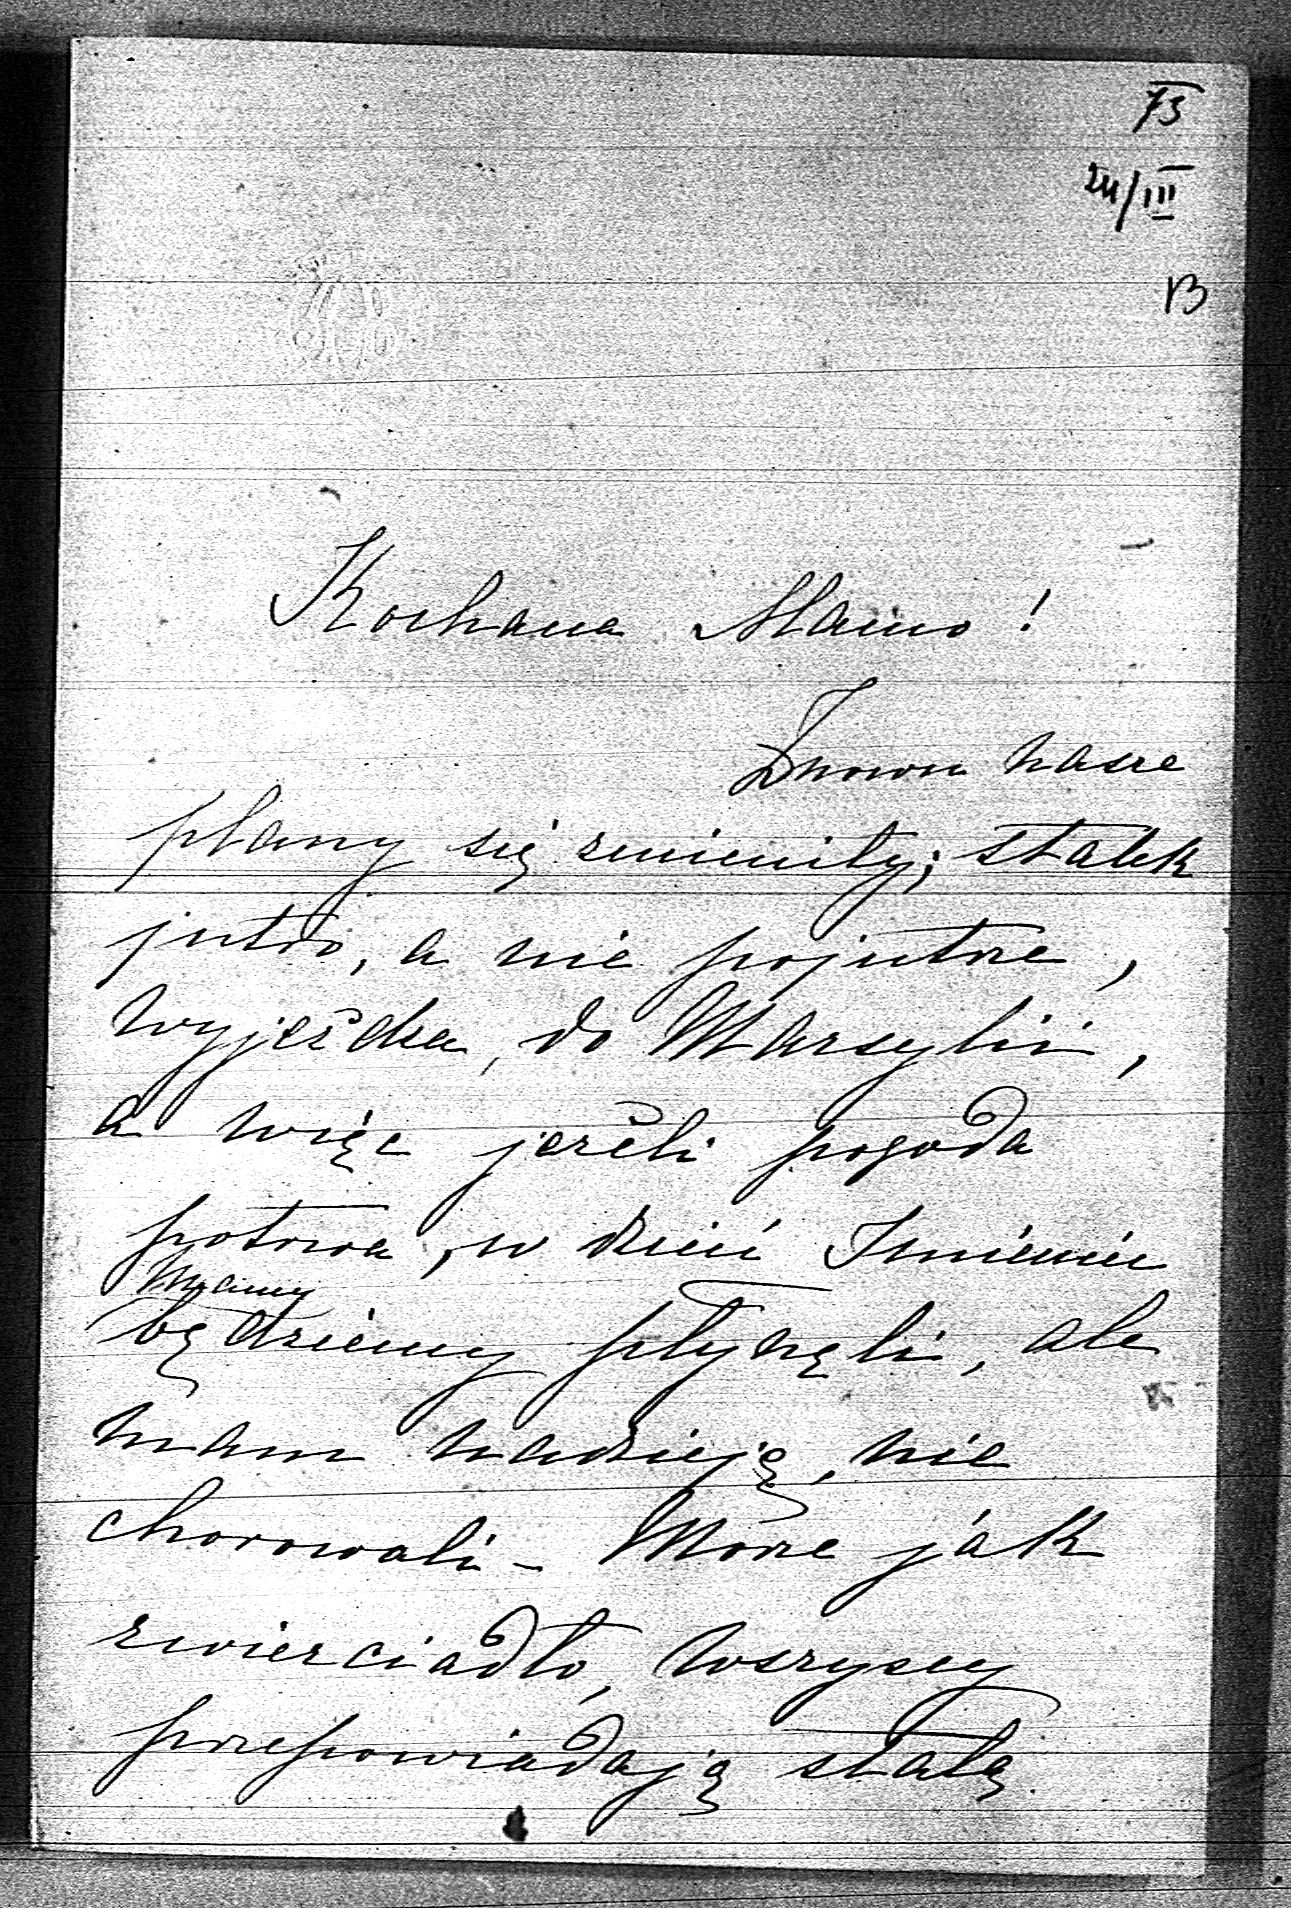 73
24/III
B
Kochana Mamo!
Znowu nasze
plany się zmieniły; statek
jutro, a nie pojutrze,
wyjeżdża, do Marsylii,
a więc jeżeli pogoda
potrwa, w dzień Imienin
Mamy
będziemy płynęli, ale
mam nadzieję, nie
chorowali - Morze jak
zwierciadło, wszyscy
przepowiadają stałą